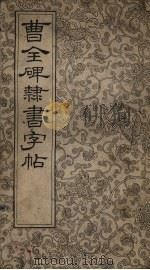 曹全碑隸書字帖